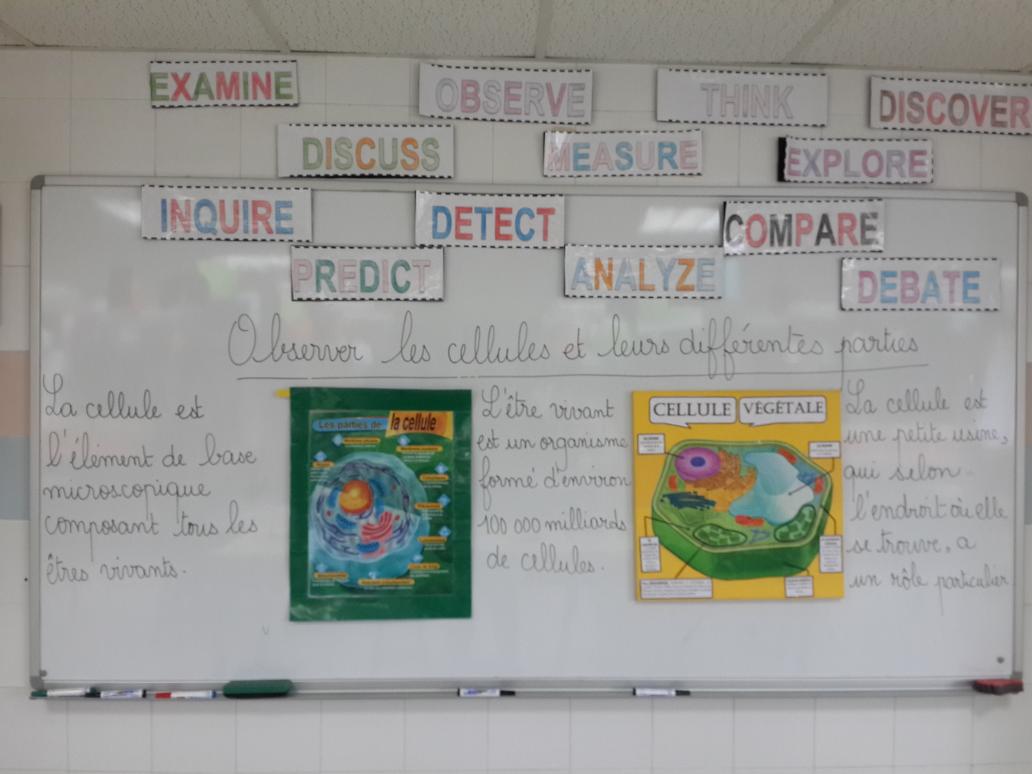 EXAMINE
OBSERVE
THINK
DISCOVER
DISCUSS
MEASURE
EXPLORE
INQUIRE
DETECT
COMPARE
PREDICT
ANALYZE
DEBATE
Observer les cellules et leurs différentes parties
La cellule est
l'élément de base
microscopique
composant tous les
êtres vivants.
Les parties de la cellule
L'être vivant
est un organisme
formé d'environ
100 000 milliards
de cellules.
CELLULE VÉGÉTALE
La cellule est
une petite usine,
qui selon
l'endroit où elle
se trouve, a
un rôle particulier